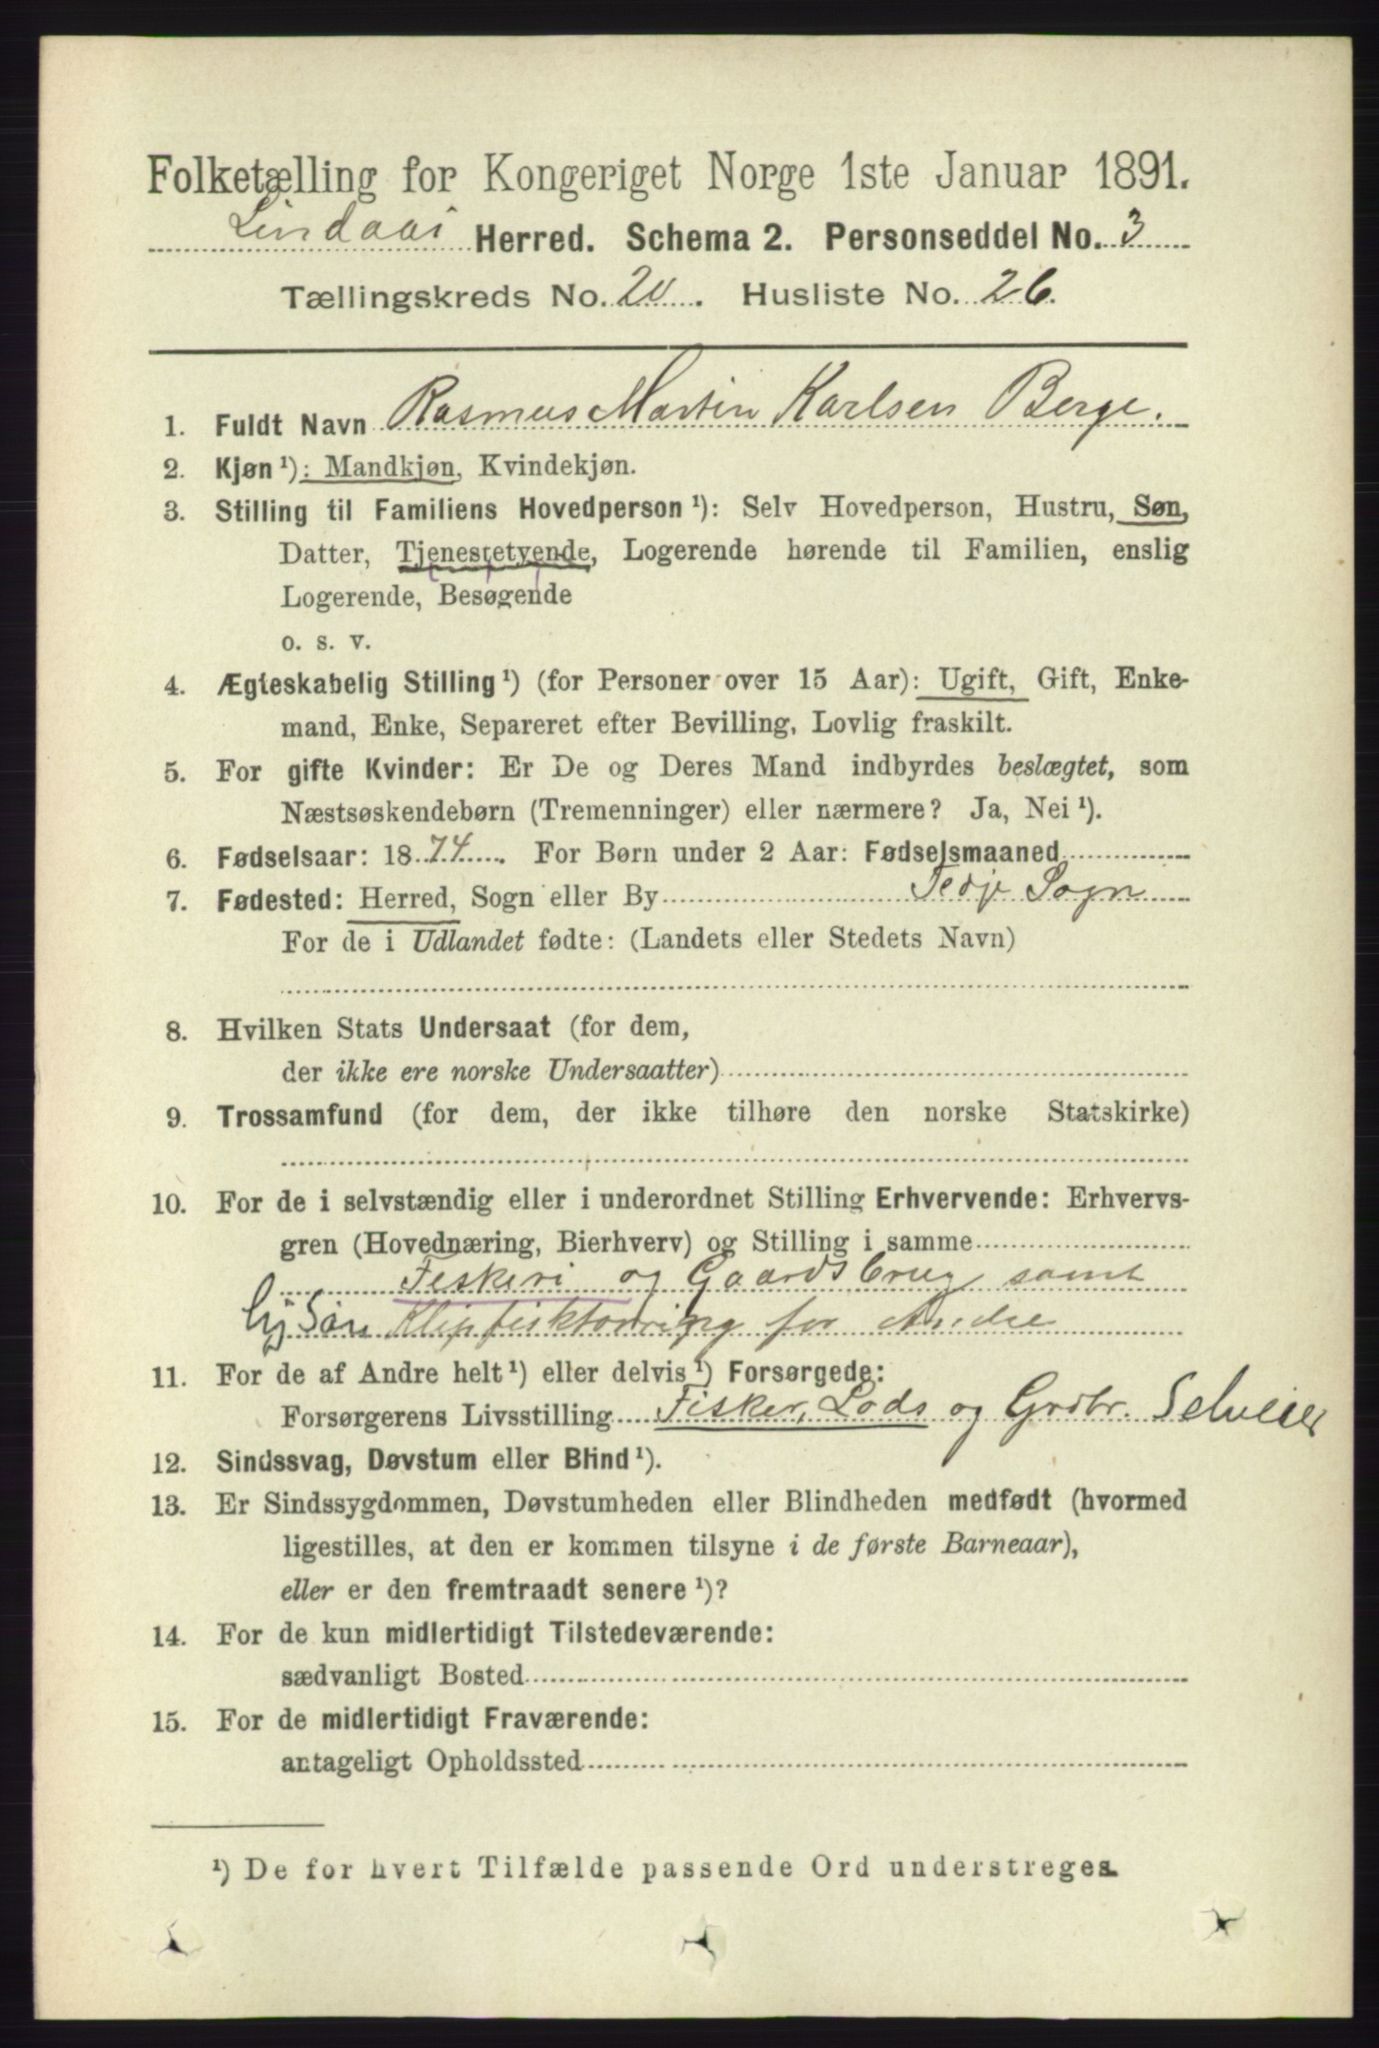 Folketælling for Kongeriget Norge 1ste Januar 1891.
Lindaas Herred. Schema 2. Personseddel No. 3
Tællingskreds No. 20. Husliste No. 26.
1. Fuldt Navn Rasmus Martin Karlsen Berge.
2. Kjøn ¹): Mandkjøn, Kvindekjøn.
3. Stilling til Familiens Hovedperson ¹): Selv Hovedperson, Hustru, Søn,
Datter, Tjenestetyende, Logerende hørende til Familien, enslig
Logerende, Besøgende
o. s. v.
4. Ægteskabelig Stilling ¹) (for Personer over 15 Aar): Ugift, Gift, Enke-
mand, Enke, Separeret efter Bevilling, Lovlig fraskilt.
5. For gifte Kvinder: Er De og Deres Mand indbyrdes beslægtet, som
Næstsøskendebørn (Tremenninger) eller nærmere? Ja, Nei ¹).
6. Fødselsaar: 1874. For Børn under 2 Aar: Fødselsmaaned
7. Fødested: Herred, Sogn eller By Fedje Sogn
For de i Udlandet fødte: (Landets eller Stedets Navn)
8. Hvilken Stats Undersaat (for dem,
der ikke ere norske Undersaatter)
9. Trossamfund (for dem, der ikke tilhøre den norske Statskirke)
10. For de i selvstændig eller i underordnet Stilling Erhvervende: Erhvervs-
gren (Hovednæring, Bierhverv) og Stilling i samme
Feskeri og Gaardsbrug samt
Søn Klipfisktørring for Andre
11. For de af Andre helt ¹) eller delvis ¹) Forsørgede:
Forsørgerens Livsstilling Fisker, Lods og Grdbr. Selveier
12. Sindssvag, Døvstum eller Blind ¹).
13. Er Sindssygdommen, Døvstumheden eller Blindheden medfødt (hvormed
ligestilles, at den er kommen tilsyne i de første Barneaar),
eller er den fremtraadt senere ¹)?
14. For de kun midlertidigt Tilstedeværende:
sædvanligt Bosted
15. For de midlertidigt Fraværende:
antageligt Opholdssted
¹) De for hvert Tilfælde passende Ord understreges.